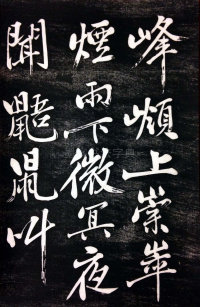 峰頔上崇崒
煙雨下微冥夜
聞鼯鼠叫